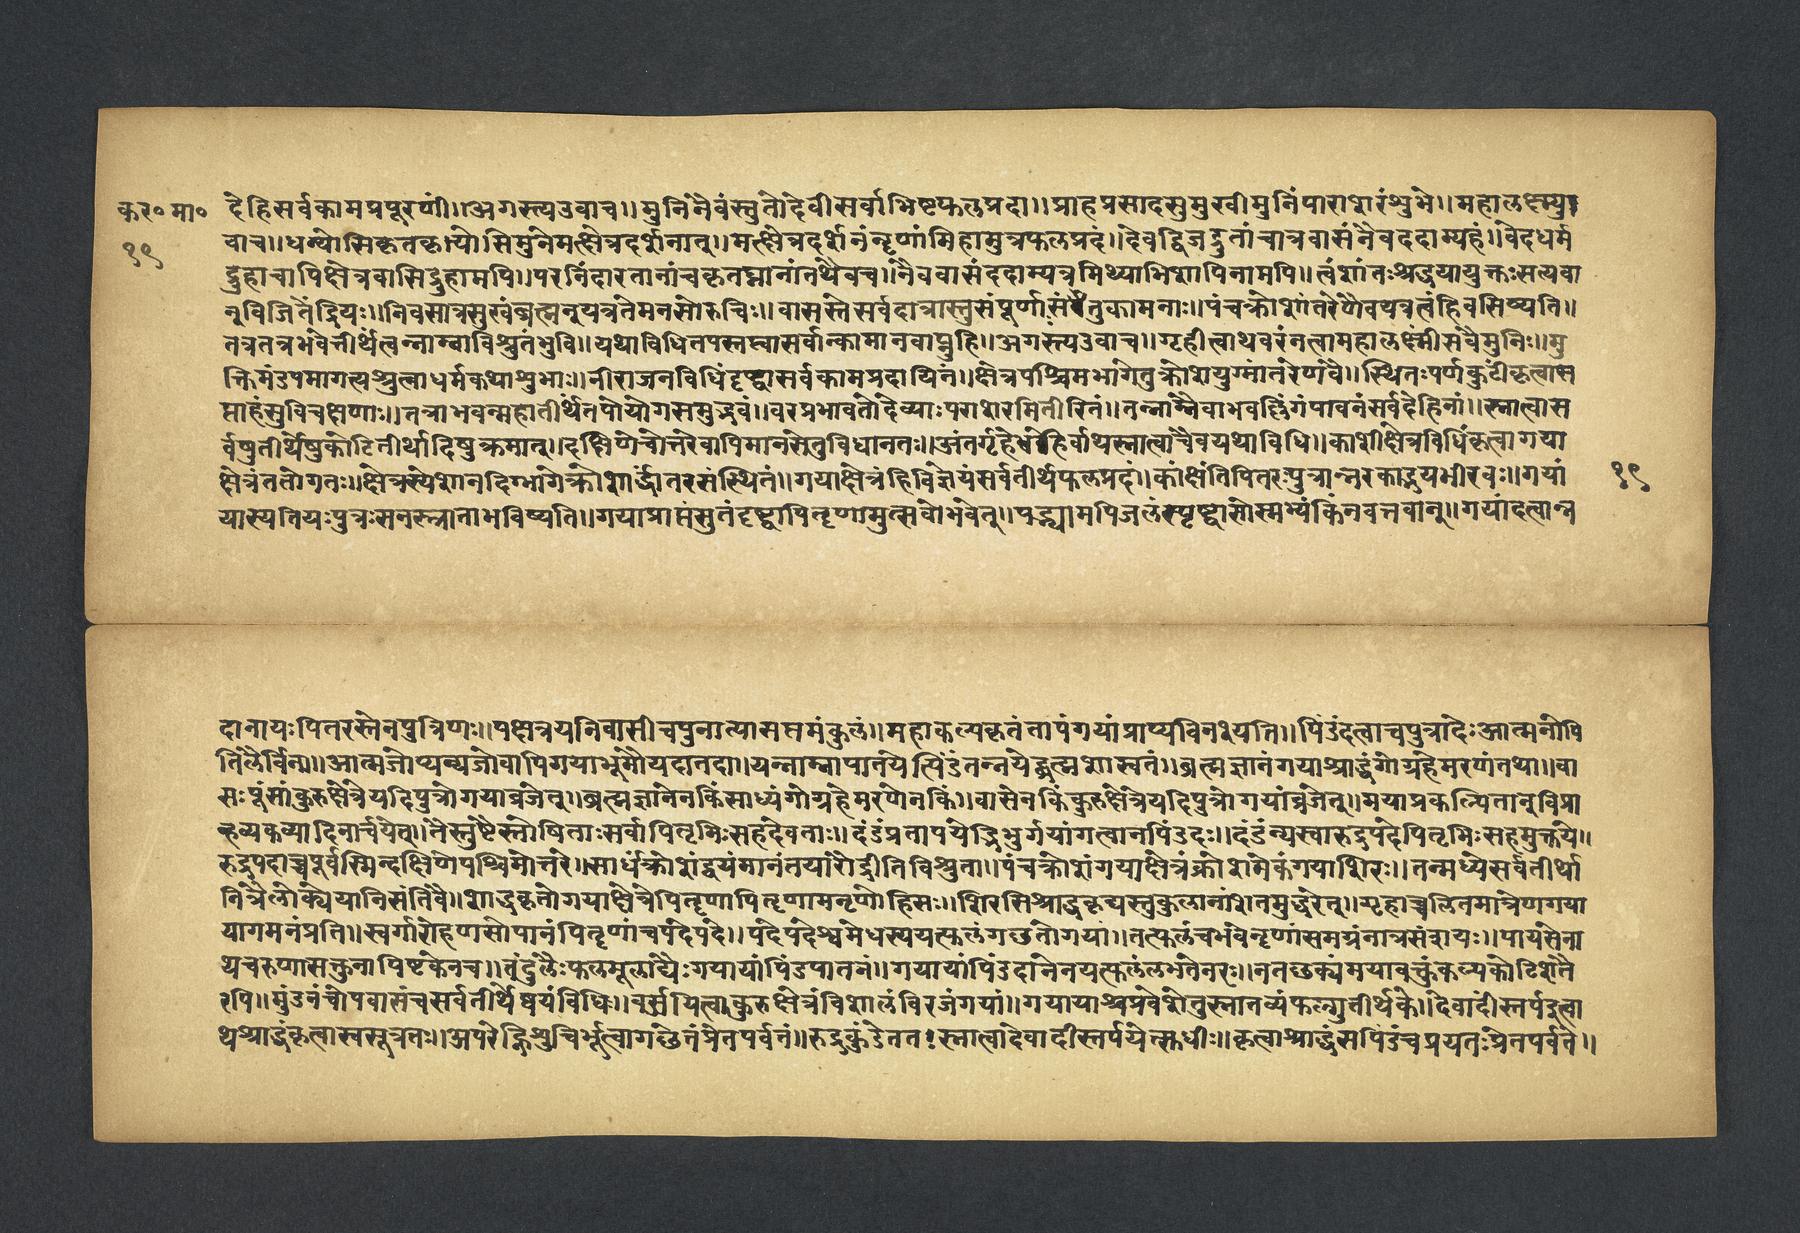 कर॰ मा॰
१९
देहिसर्वकामप्रपूरणी॥अगस्त्यउवाच॥मुनिनैवंस्तुतोदेवीसर्वाभिष्टफलप्रदा॥प्राहप्रसादसुमुखीमुनिंपाराशरंशुभे॥महालक्ष्म्यु
वाच॥धन्योसिकृतकृत्योसिमुनेमत्क्षेत्रदर्शनात्॥मत्क्षेत्रदर्शनंनृणांमिहामुत्रफलप्रदं॥देवद्विजद्रुतांचात्रवासंनैवददाम्यहं॥वेदधर्म
द्रुहाचापिक्षेत्रवासिद्रुहामपि॥परनिंदारतानांचकृतघ्नानांतथैवच॥नैववासंददाम्यत्रमिथ्याभिशापिनामपि॥त्वंशांतःश्रद्धयायुक्तःसत्यवा
नुविजितेंद्रियः॥निवसात्रसुखंब्रह्मनुयत्रतेमनसोरुचिः॥वासस्तेसर्वदात्रास्तुसंपूर्णासंतुकामनाः॥पंचक्रोशांतरेणैवयत्रत्वंहिवसिष्यति॥
तत्रतत्रभवेत्तीर्थंत्वन्नाम्नाविश्रुतंभुवि॥यथाविधितपस्तप्त्वासर्वान्कामानवाप्नुहि॥अगस्त्यउवाच॥गृहीत्वाथवरंनत्वामहालक्ष्मींसवैमुनिः॥मु
क्तिमंडपमागत्यश्रुत्वाधर्मकथाशुभाः॥नीराजनविधिंदृष्ट्वासर्वकामप्रदायिनं॥क्षेत्रपश्चिमभागेतुक्रोशयुग्मांतरेणवै॥स्थितःपर्णकुटींकृत्वास
प्ताहंसुविचक्षणाः॥तत्राभवन्महातीर्थंतपोयोगसमुद्भवं॥वरप्रभावतोदेव्याःपराशरमितीरितं॥तन्नाम्नैवाभवल्लिंगंपावनंसर्वदेहिनां॥स्नात्वास
र्वषुतीर्थेषुकोटितीर्थादिषुक्रमात्॥दक्षिणेचोत्तरेवापिमानसेतुविधानतः॥अंतर्गृहेबहिर्वाथस्नात्वाचैवयथाविधि॥काशीक्षेत्रविधिंकृत्वागया
क्षेत्रंततोगतः॥क्षेत्रस्येशानदिग्भागेक्रोशार्द्धांतरसंस्थितं॥गयाक्षेत्रंहिविज्ञेयंसर्वतीर्थफलप्रदं॥कांक्षंतिपितरःपुत्रान्नरकाद्भयभीरवः॥गयां
यास्यतियःपुत्रःसनस्त्राताभविष्यति॥गयाप्राप्तंसुतंदृष्ट्वापितृणामुत्सवोभवेत्॥पद्भ्यामपिजलंस्पृष्ट्वासोस्मभ्यंकिंनदत्तवान्॥गयांदत्वान्न
१९
दानायःपितरस्तेनपुत्रिणः॥पक्षत्रयनिवासीचपुनात्यासप्तमंकुलं॥महाकल्पकृतंतापंगयांप्राप्यविनश्यति॥पिंडंदत्वाचपुत्रादेःआत्मनोपि
तिलैर्विना॥आत्मजोप्यन्यजोवापिगयाभूमौयदातदा॥यन्नाम्नापातयेत्पिंडंतन्नयेद्ब्रह्मशाश्वतं॥ब्रह्मज्ञानंगयाश्राद्धंगोग्रहेमरणंतथा॥वा
सःपुंसांकुरुक्षेत्रेयदिपुत्रोगयांव्रजेत्॥ब्रह्मज्ञानेनकिंसाध्यंगोग्रहेमरणेनकिं॥वासेनकिंकुरुक्षेत्रेयदिपुत्रोगयांव्रजेत्॥मयाप्रकल्पितानुविप्रा
हव्यकव्यादिनार्चयेत्॥तैस्तुष्टैस्तोषिताःसर्वापितृभिःसहदेवताः॥दंडंप्रतापयेद्भिक्षुर्गयांगत्वानपिंडदः॥दंडंन्यस्त्वारुद्रपदेपितृभिःसहमुक्तये॥
रुद्रपदाच्चपूर्वस्मिन्दक्षिणेपश्चिमोत्तरे॥सार्धक्रोशद्वयंमानंतयांशेद्रीतिविश्रुता॥पंचक्रोशंगयाक्षेत्रंक्रोशमेकंगयाशिरः॥तन्मध्येसर्वतीर्था
नित्रैलोक्येयानिसंतिवै॥श्राद्धकृतोगयाक्षेत्रेपितृणापितृणामनृणोहिसः॥शिरसिश्राद्धकृद्यस्तुकुलानांशतमुद्धरेत्॥गृहाच्चलितमात्रेणगया
यागमनंप्रति॥स्वर्गारोहणसोपानंपितृणांचपदेपदे॥पदेपदेश्वमेधस्ययत्फलंगछतोगयां॥तत्फलंचभवेनृणांसमग्रंनात्रसंशयः॥पायसेना
थचरुणासक्तुनापिष्टकेनच॥तंदुलैःफलमूलाद्यैःगयायांपिंडपातनं॥गयायांपिंडदानेनयत्फलंलभतेनरः॥नतछक्यंमयावक्तुंकल्पकोटिशतै
रपि॥मुंडनंचोपवासंचसर्वतीर्थेष्वयंविधिः॥वर्जयित्वाकुरुक्षेत्रंविशालंविरजंगयां॥गयायाश्चप्रवेशेतुस्नातव्यंफल्गुतीर्थके॥देवादींस्तर्पइत्वा
थश्राद्धंकृत्वास्वसूत्रतः॥अपरेह्निशुचिर्भूत्वागछेतंप्रेतपर्वतं॥रुद्रकुंडेततःस्नात्वादेवादींस्तर्पयेत्सुधीः॥कृत्वाश्राद्धंसपिंडंचप्रयतःप्रेतपर्वते॥